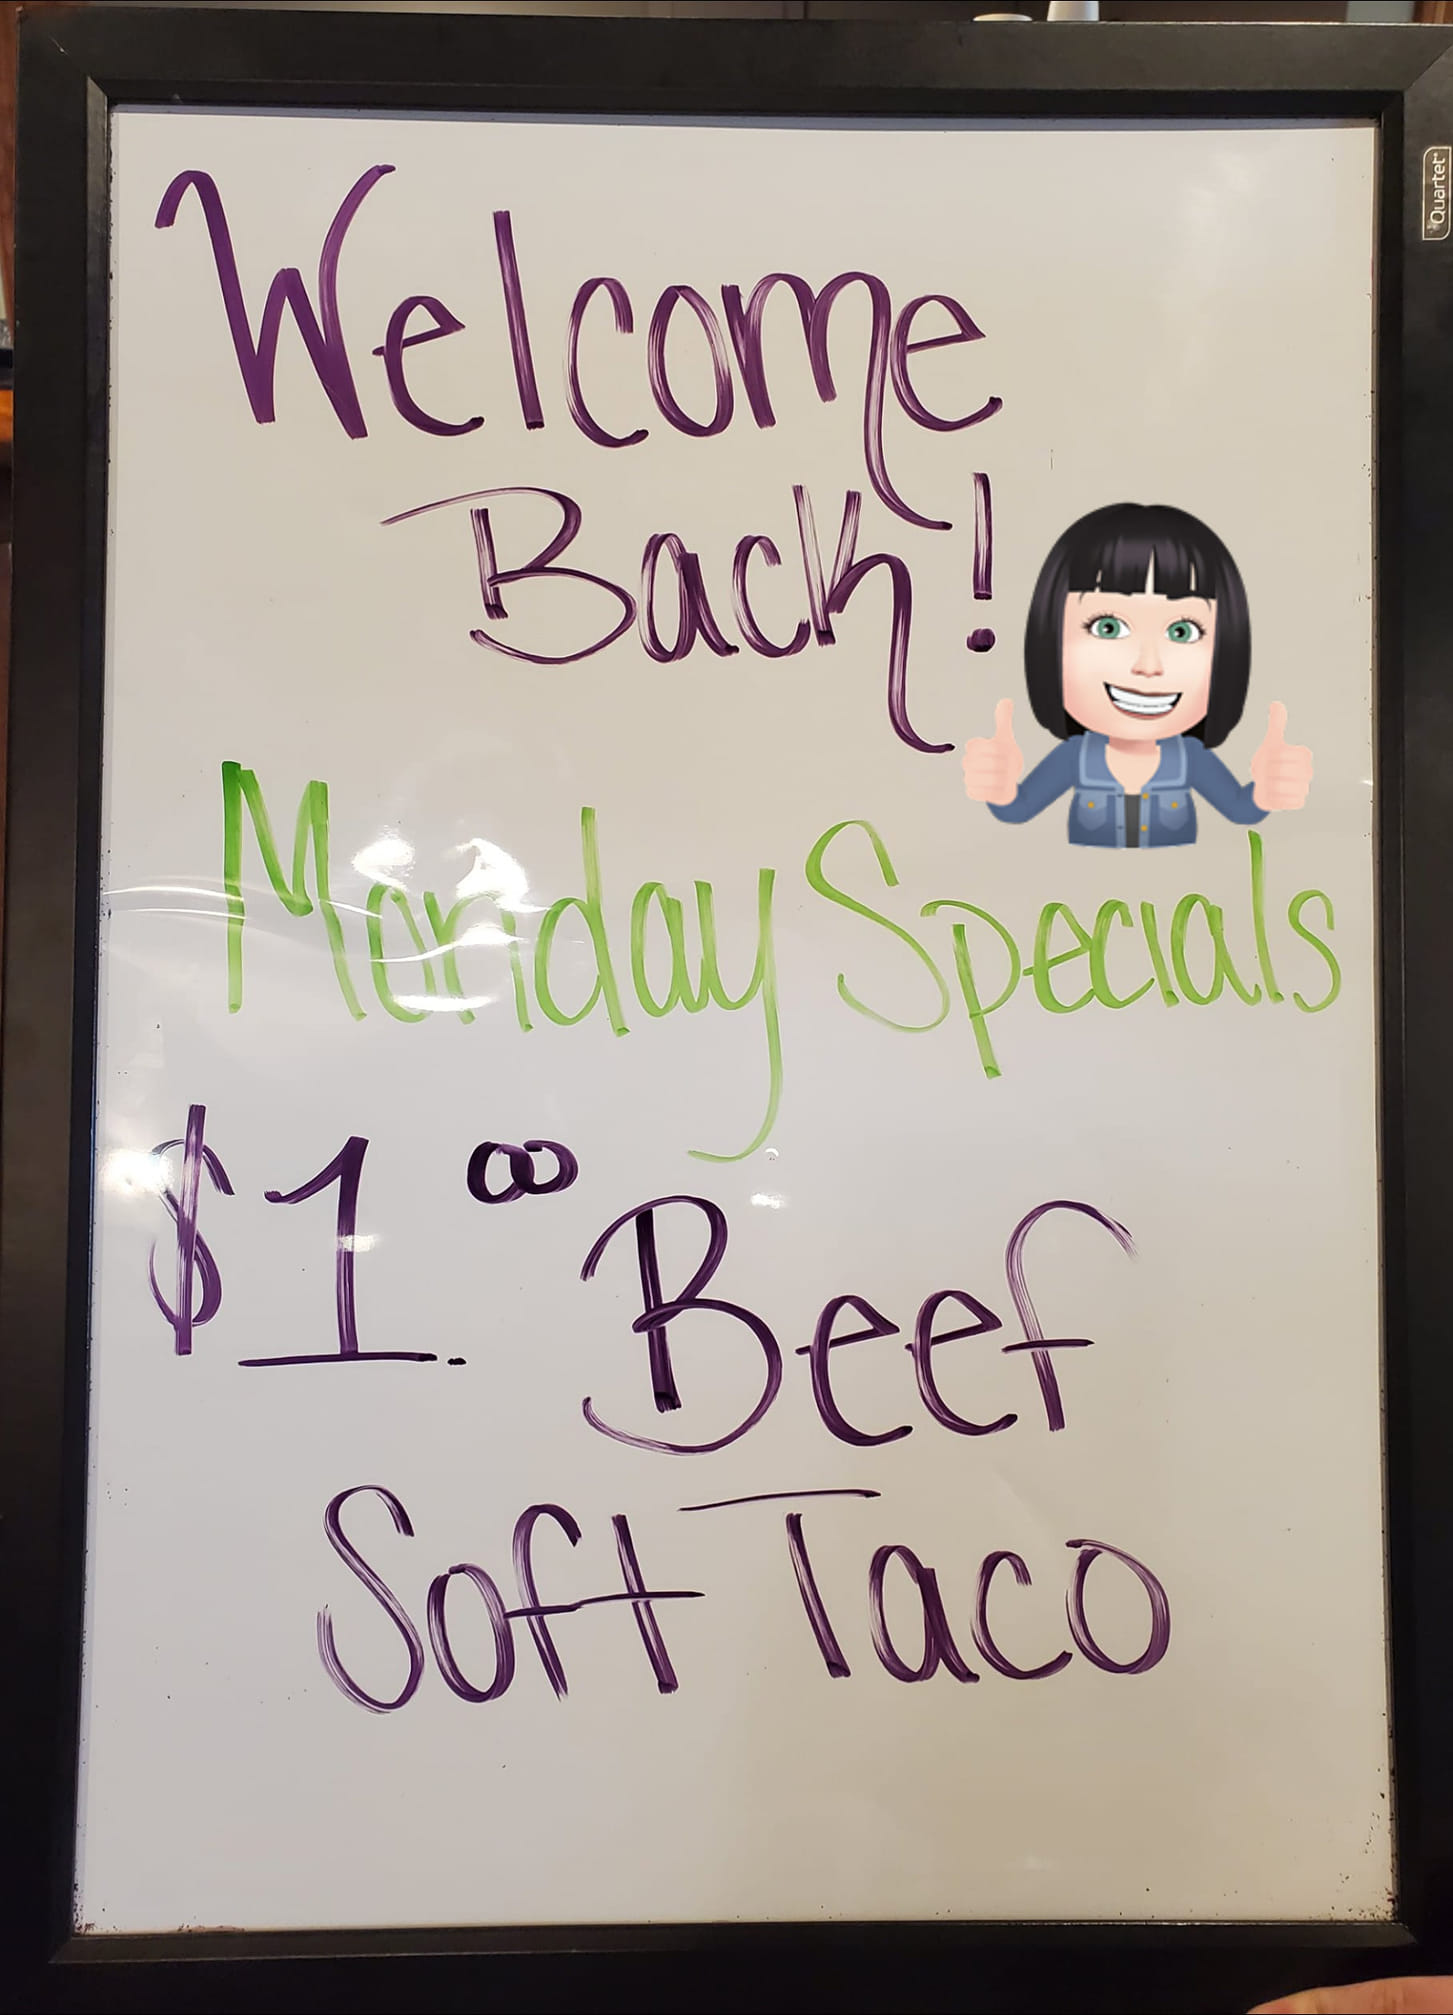 Welcome
Back!
Monday Specials
$1.00 Beef
Soft Taco
Quartet